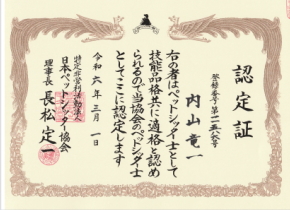 認定証
内山 竜一
右の者はペットシッター士として
技能品格共に適格と認め
られるので当協会のペットシッター士
としてここに認定します
令和六年三月一日
特定非営利活動法人
日本ペットシッター協会
理事長 長松 定一